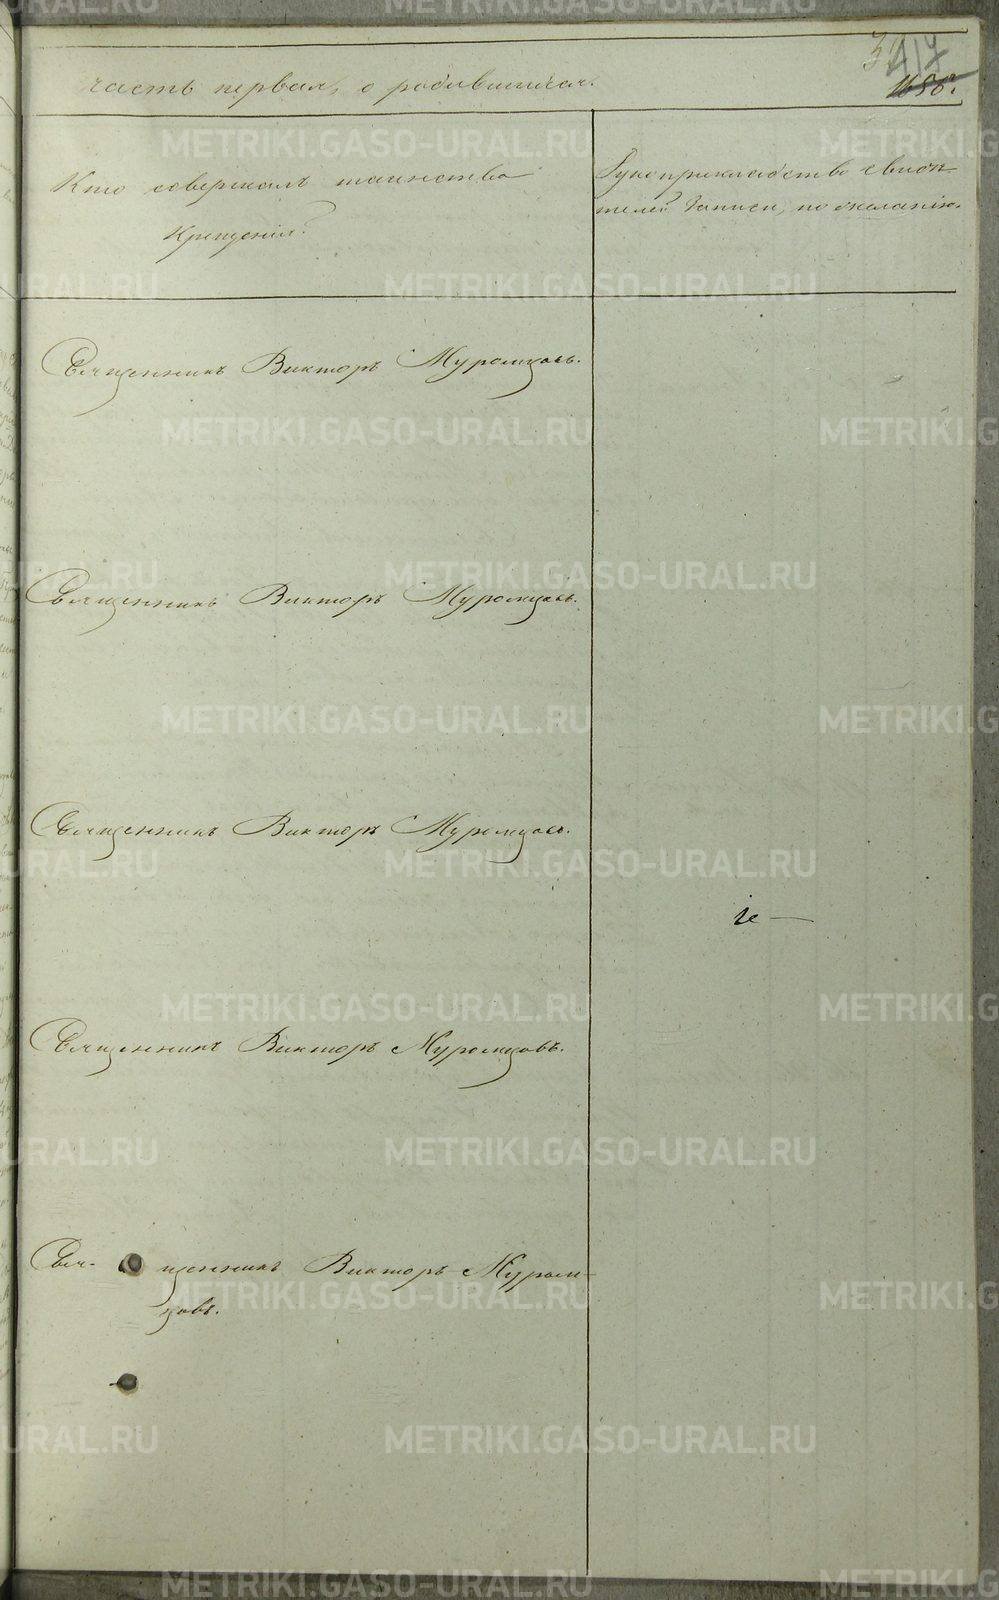 417
часть первая, о родившихся.
Кто совершалъ таинство
крещенія?
Рукоприкладство свидѣ-
телей записи, по желанію.
Священникъ Викторъ Муромцовъ.
Священникъ Викторъ Муромцовъ.
Священникъ Викторъ Муромцовъ.
Священникъ Викторъ Муромцовъ.
Свя- щенникъ Викторъ Муром-
цовъ.
METRIKI.GASO-URAL.RU